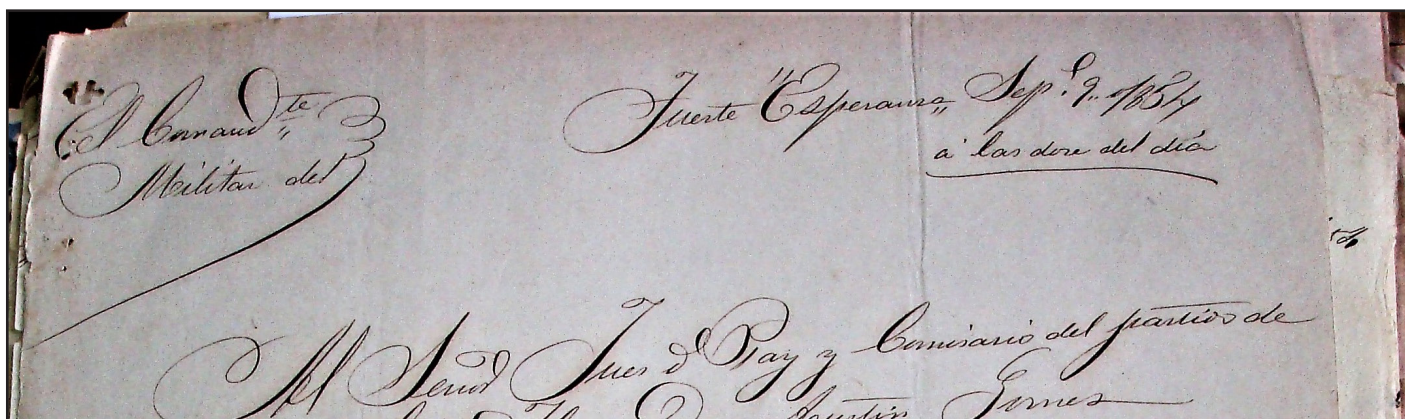 El Comand.te
Militar del
Fuerte "Esperanza" Sep.e 9.. 1854
á las dose del día
Al Señor Jues d Pay y Comisario del partido de
Agustin Gomes